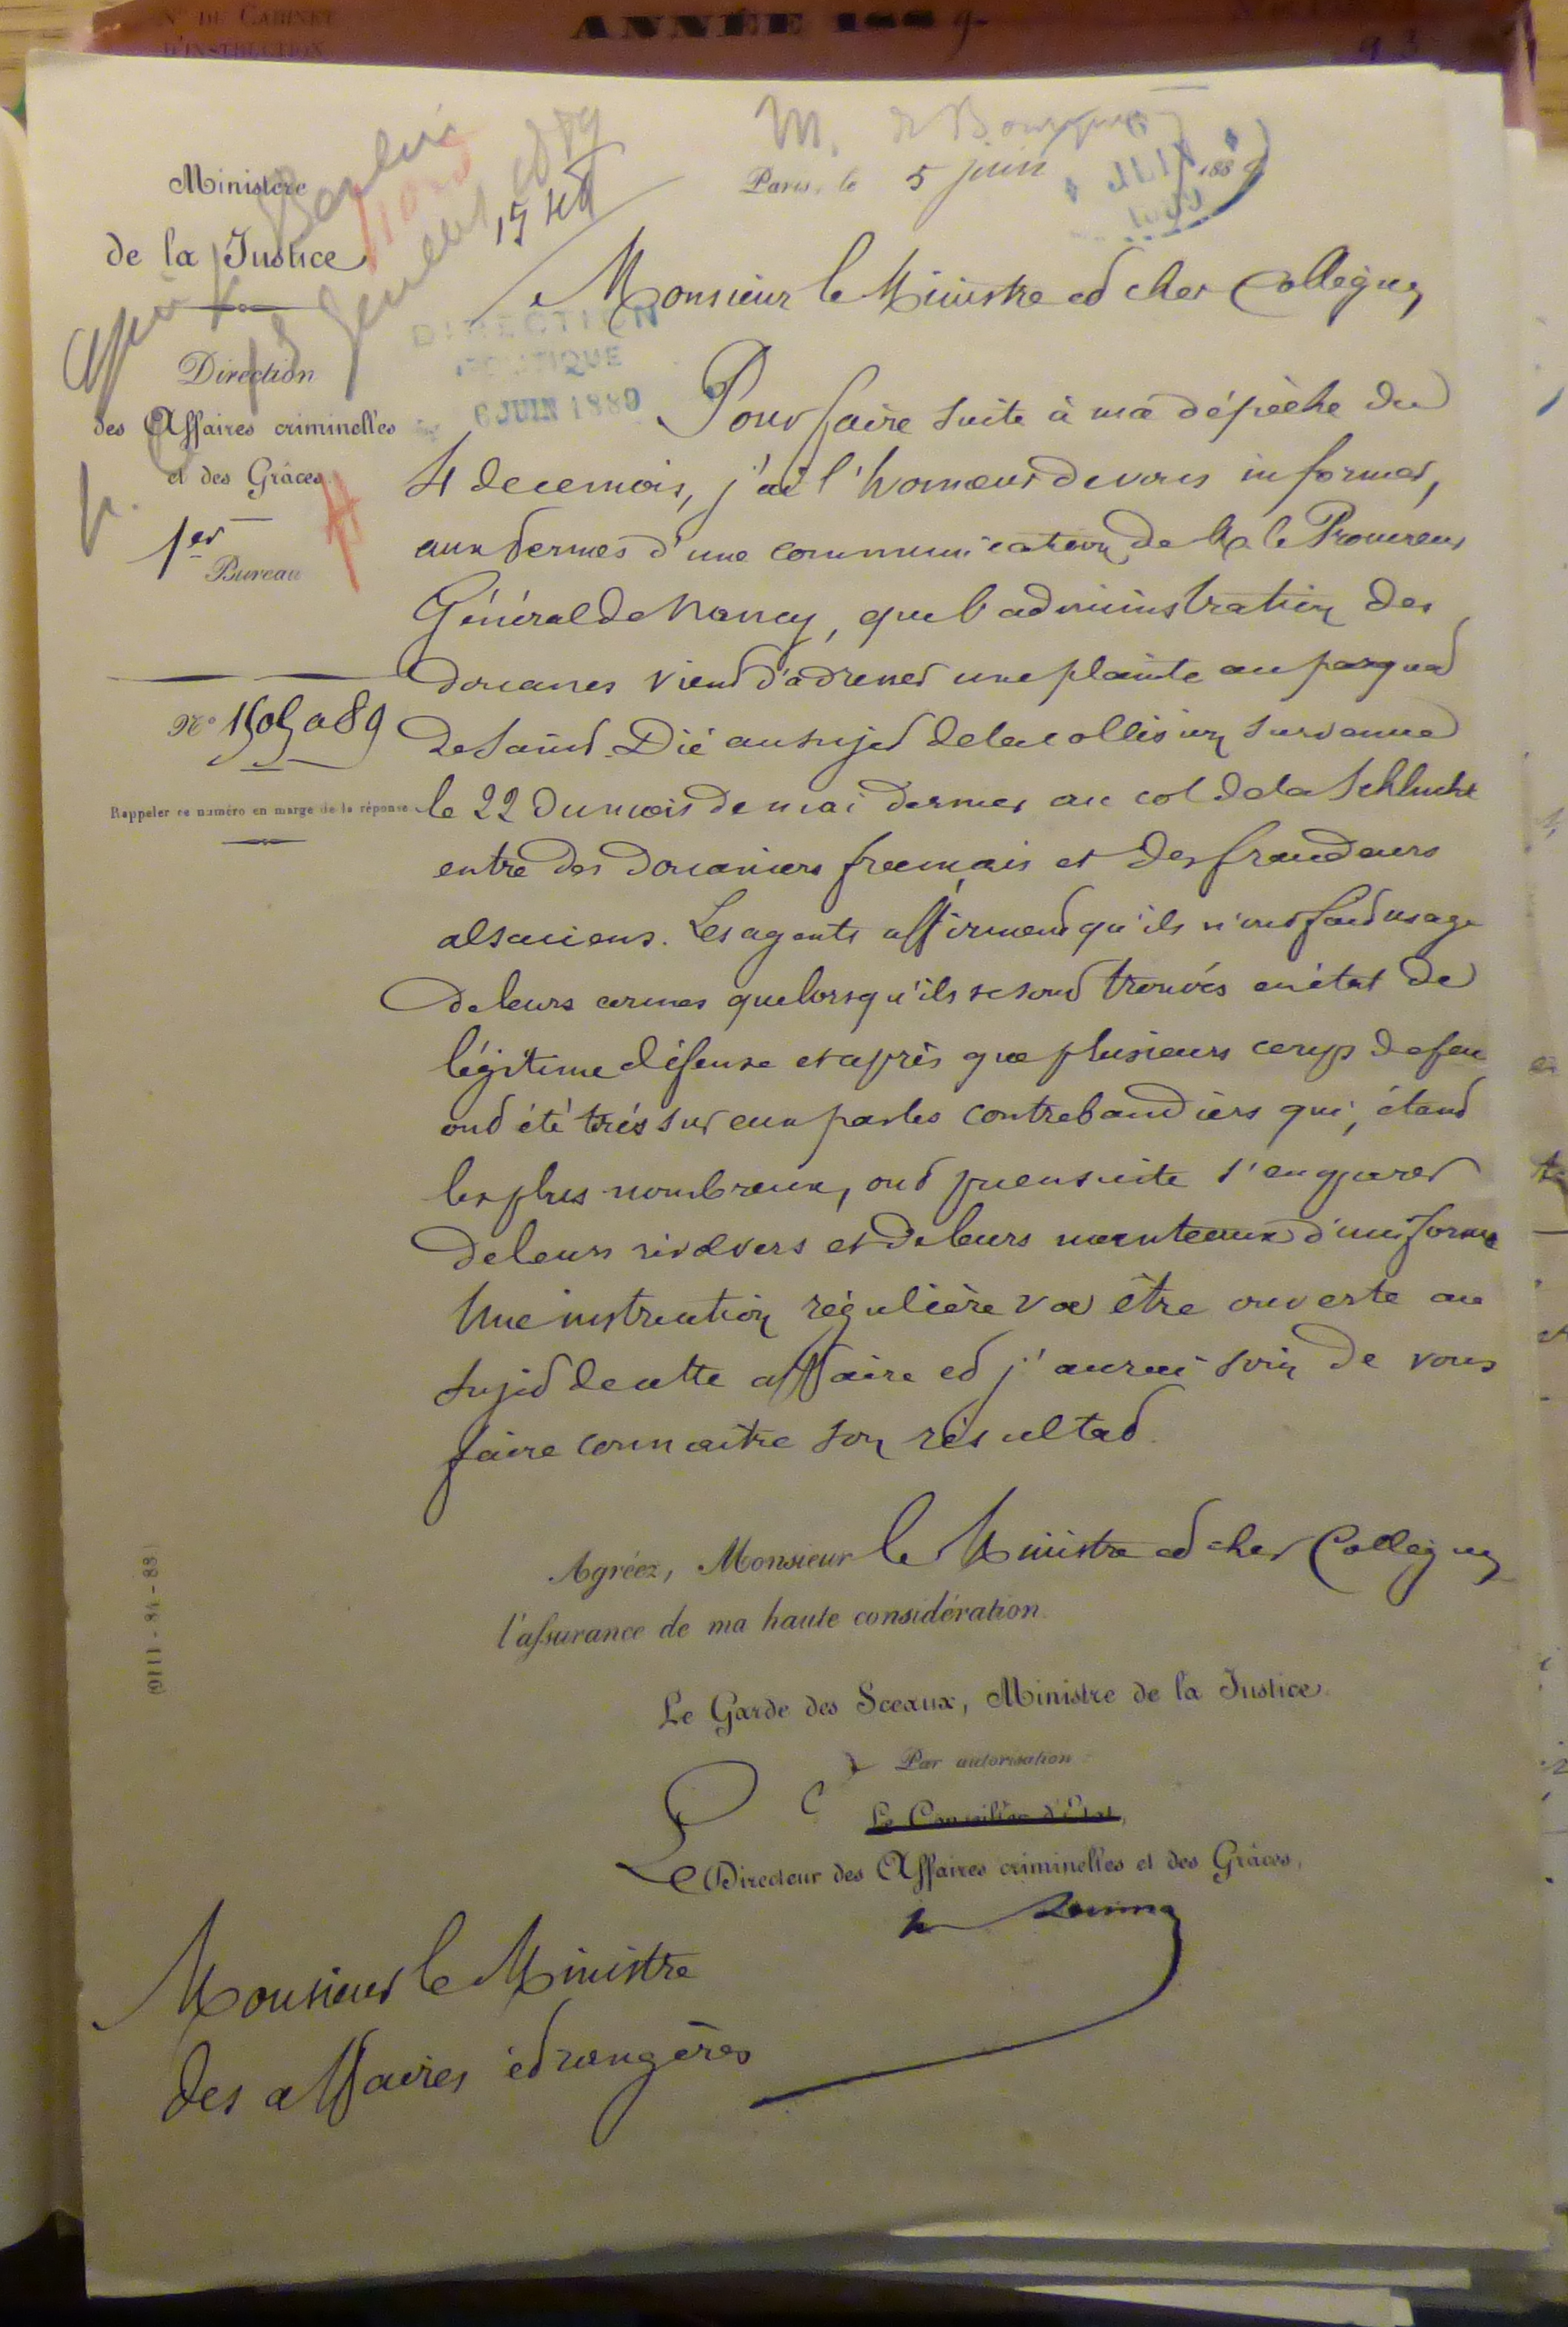 N° DU CABINET
D'INSTRUCTION
ANNÉE 1889
93
M. de
Ministère
de la Justice
Direction
des Affaires criminelles
et des Grâces
1er Bureau
N° 1505 a 89
Rappeler ce numéro en marge de la réponse
Berlin
DIRECTION
POLITIQUE
6 JUIN 1889
Paris, le 5 juin 1889
Monsieur le Ministre et cher Collègue,
Pour faire suite à ma dépêche du
4 de ce mois, j'ai l'honneur de vous informer,
aux termes d'une communication de M. le Procureur
Général de Nancy, que l'administration des
Douanes vient d'adresser une plainte au parquet
de Saint-Dié au sujet de la collision survenue
le 22 du mois de mai dernier au col de la Schlucht
entre des Douaniers français et des fraudeurs
alsaciens. Les agents affirment qu'ils n'ont fait usage
de leurs armes que lorsqu'ils se sont trouvés en état de
légitime défense et après que plusieurs coups de feu
ont été tirés sur eux par les contrebandiers qui, étant
les plus nombreux, ont pu ensuite s'emparer
de leurs révolvers et de leurs manteaux d'uniforme
Une instruction régulière va être ouverte au
sujet de cette affaire et j'aurai soin de vous
faire connaître son résultat.
Agréez, Monsieur le Ministre et cher Collègue,
l'assurance de ma haute considération.
Le Garde des Sceaux, Ministre de la Justice.
Par autorisation :
Le Conseiller d'Etat,
Le Directeur des Affaires criminelles et des Grâces,
Monsieur le Ministre
des affaires étrangères
0111-84-88